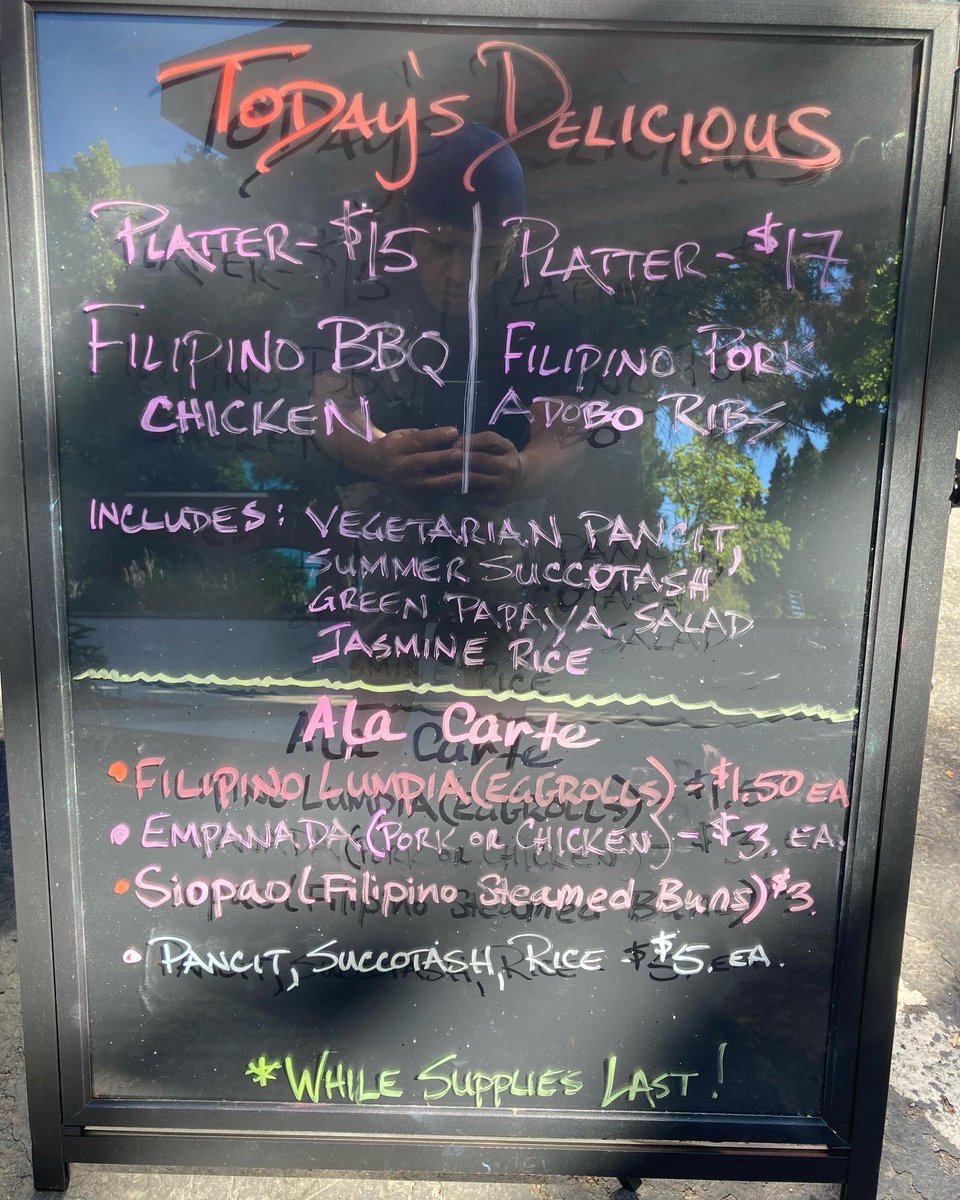 TODAY'S DELICIOUS
PLATTER - $15
FILIPINO BBQ
CHICKEN
PLATTER - $17
FILIPINO PORK
ADOBO RIBS
INCLUDES: VEGETARIAN PANCIT,
SUMMER SUCCOTASH
GREEN PAPAYA SALAD
JASMINE RICE
Ala Carte
• FILIPINO LUMPIA (EGGROLLS) - $1.50 EA
• EMPANADA (PORK OR CHICKEN) - $3. EA.
• Siopao (Filipino Steamed Buns) $3.
• PANCIT, SUCCOTASH, RICE - $5. EA.
*WHILE SUPPLIES LAST!